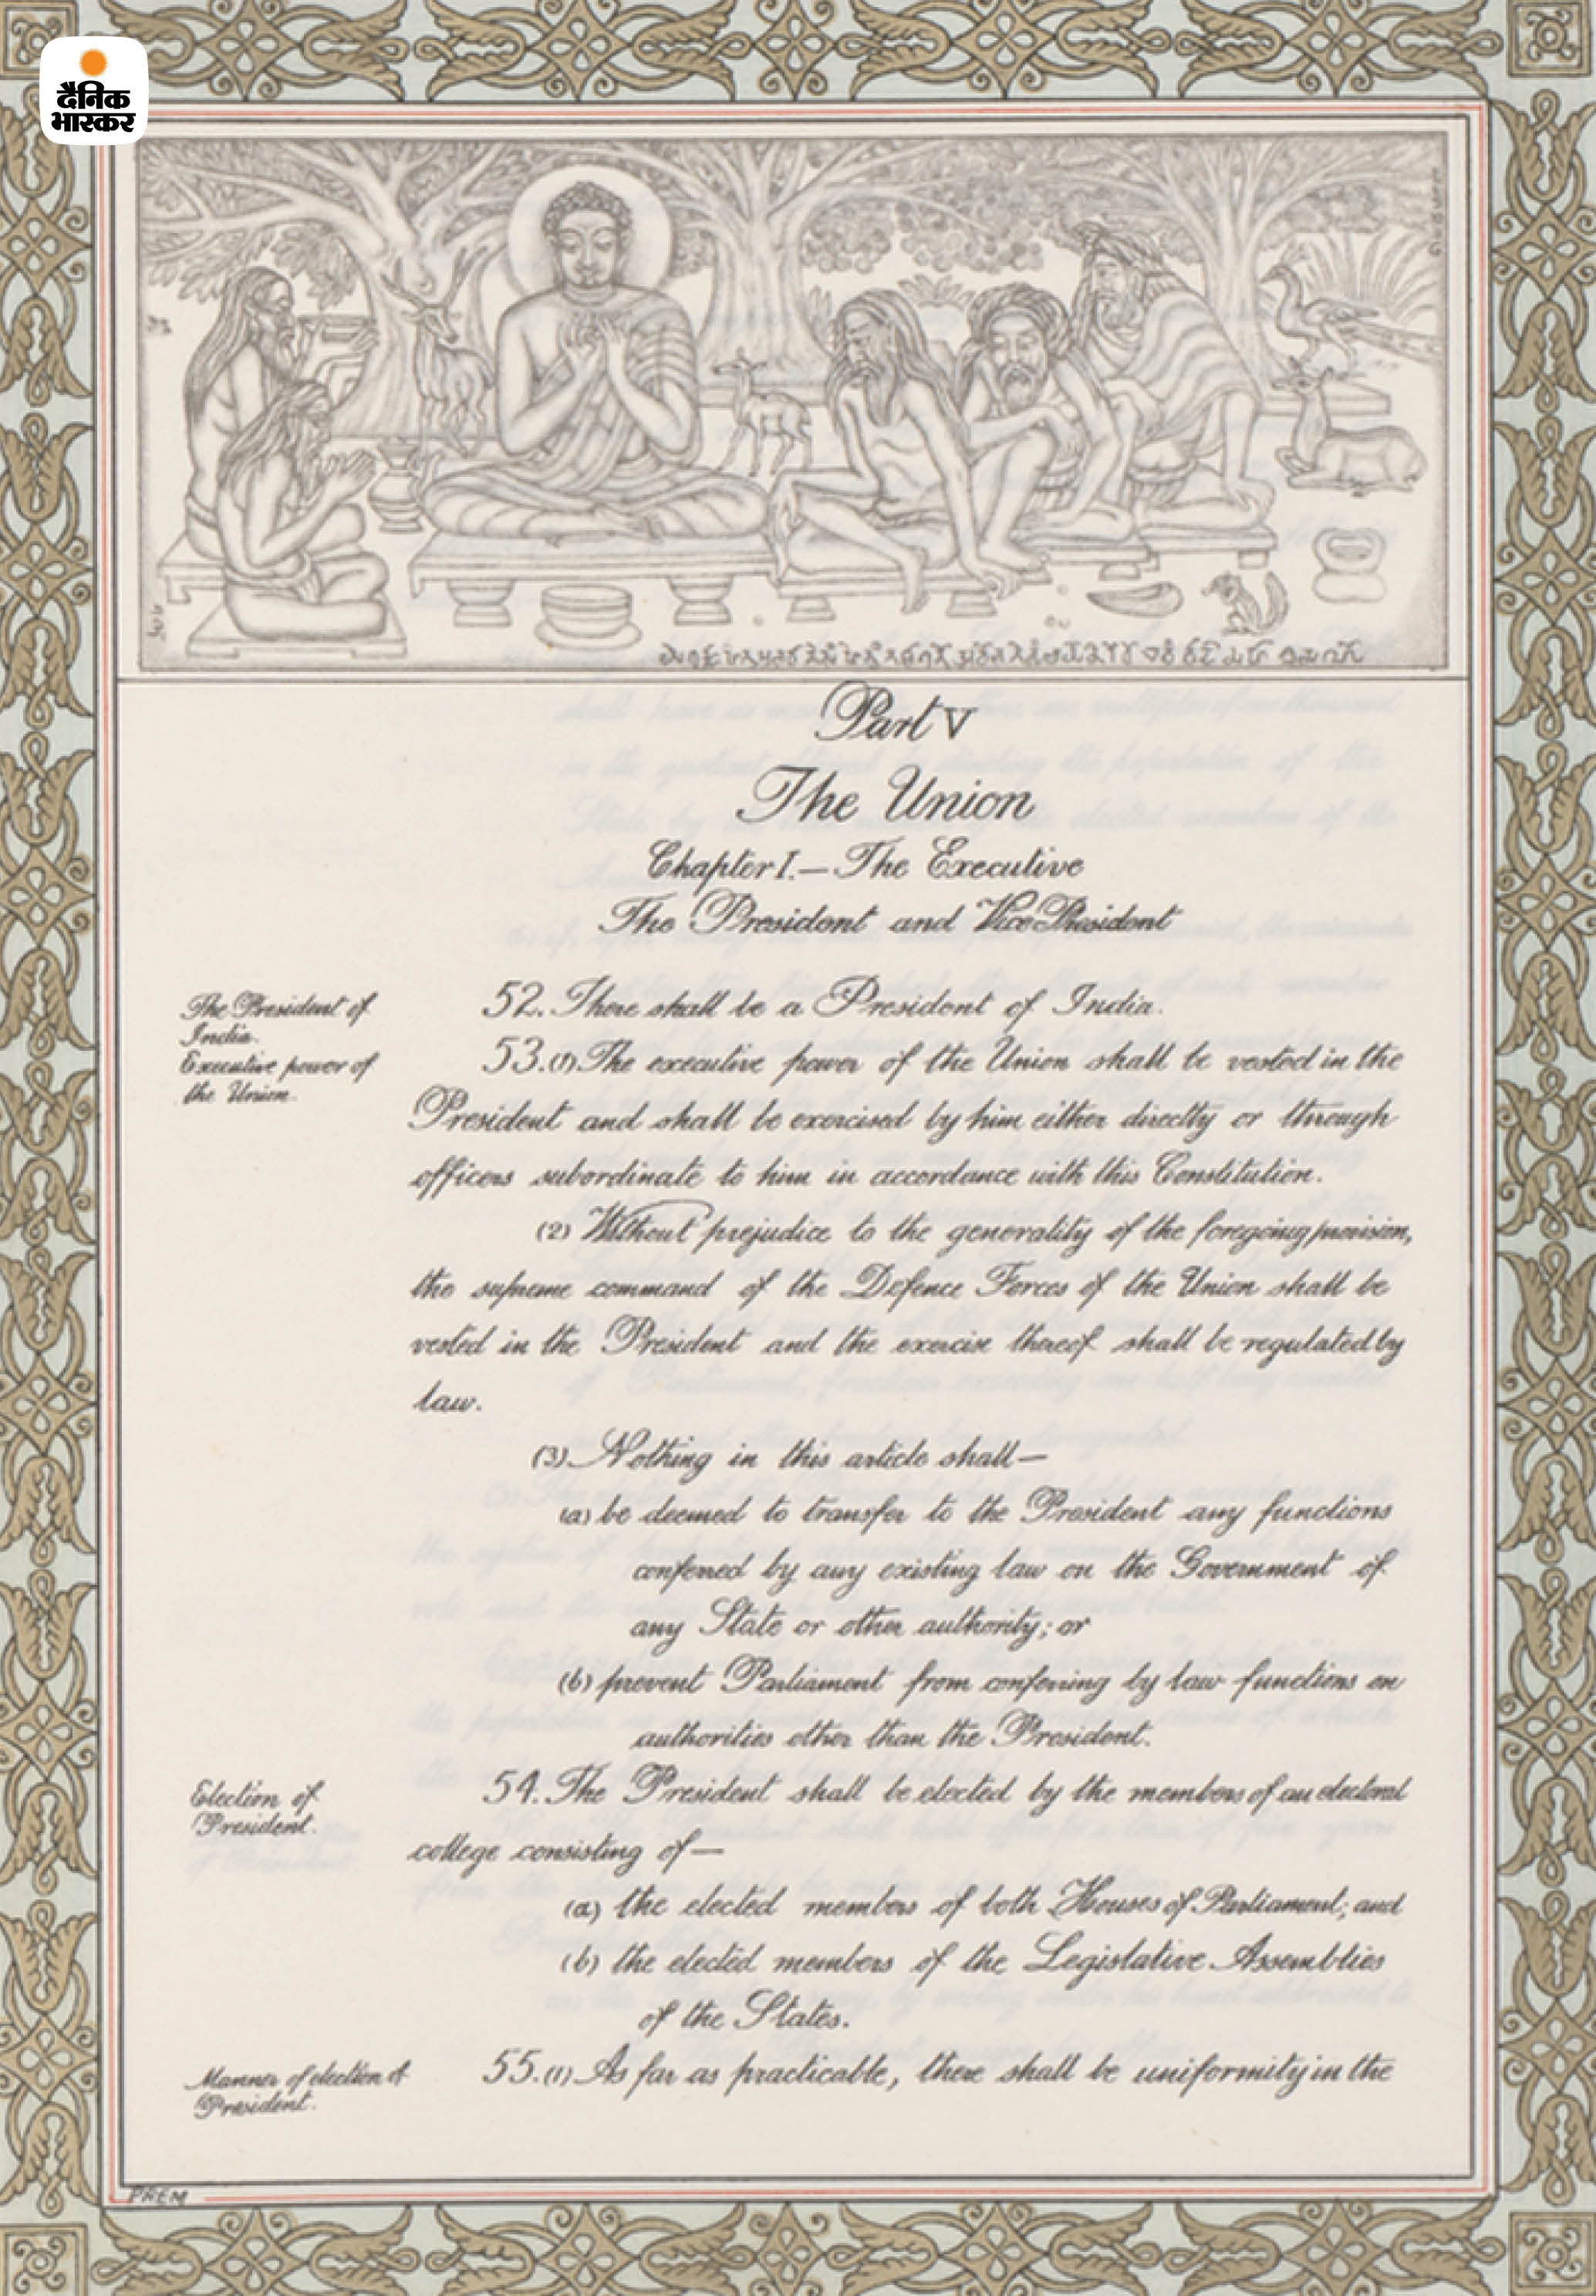 दैनिक
भास्कर
Part V
The Union
Chapter I.— The Executive
The President and Vice-President
The President of
India.
52. There shall be a President of India.
Executive power of
the Union.
53.(1) The executive power of the Union shall be vested in the
President and shall be exercised by him either directly or through
officers subordinate to him in accordance with this Constitution.
(2) Without prejudice to the generality of the foregoing provision,
the supreme command of the Defence Forces of the Union shall be
vested in the President and the exercise thereof shall be regulated by
law.
(3) Nothing in this article shall—
(a) be deemed to transfer to the President any functions
conferred by any existing law on the Government of
any State or other authority; or
(b) prevent Parliament from conferring by law functions on
authorities other than the President.
Election of
President.
54. The President shall be elected by the members of an electoral
college consisting of—
(a) the elected members of both Houses of Parliament; and
(b) the elected members of the Legislative Assemblies
of the States.
Manner of election of
President.
55.(1) As far as practicable, there shall be uniformity in the
PREM